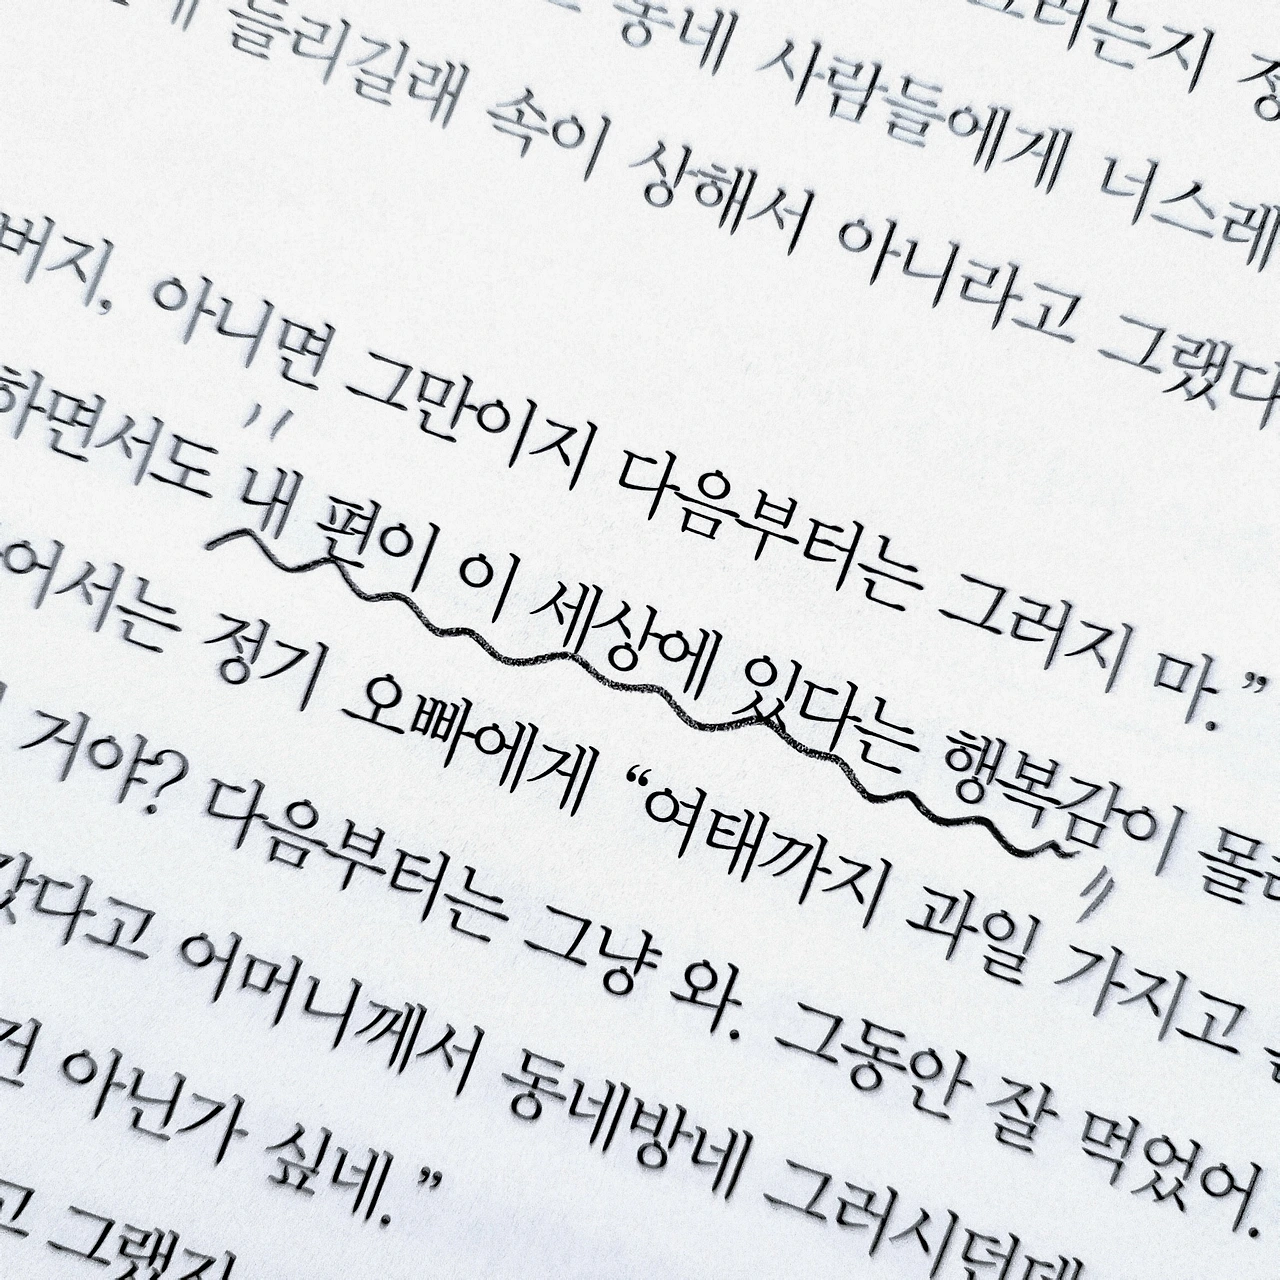 그러는지
동네 사람들에게 너스레
들리길래 속이 상해서 아니라고 그랬다
버지, 아니면 그만이지 다음부터는 그러지 마.”
하면서도 내 편이 이 세상에 있다는 행복감이
어서는 정기 오빠에게 “여태까지 과일 가지고
거야? 다음부터는 그냥 와. 그동안 잘 먹었어.
갔다고 어머니께서 동네방네 그러시던데
건 아닌가 싶네.”
고 그랬지